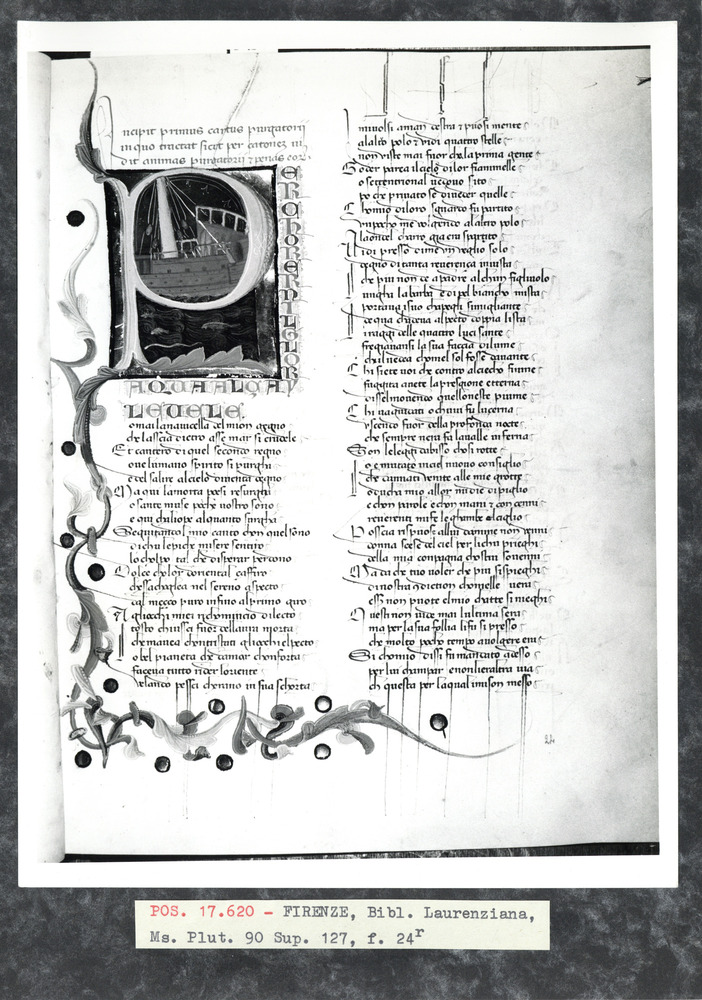 Incipit primus cantus purgatorij
in quo tractat sicut per catonez in
PER CHORER MILGLOR
AQUA ALÇA
LEUELE
omai lanauicella del mion gegno
che lascia dietro asse mar si crudele
Et cantero di quel secondo regno
oue lumano spirito si purgha
e del salire alcielo diuenta degno
Ma qui lamorta poesi resurgha
o sante muse poche uostro sono
e qui chaliope alquanto surgha
Seguitando l mio canto chon quel suono
di chui le piche misere sentiro
lo cholpo tal che disperar perdono
Dolce cholor doriental çaffiro
che sachoglea nel sereno aspecto
dal meço puro infino al primo giro
Agliocchi miei richomincio dilecto
tosto chiussci fuor dellaura morta
che mauea chontristati gliocchi elpecto
o bel pianeta che damar chonforta
faceua tutto rider loriente
uelando pessci cherano in sua schorta
I mi uolsi aman destra 7 puosi mente
alaltro polo 7 uidi quattro stelle
non uiste mai fuor che la prima gente
Goder parea il cielo di lor fiammelle
o settentrional ueduuo sito
po che priuato se di ueder quelle
Chomio di loro sguardo fu partito
un pocho me uolgendo alaltro polo
la onde l charro gia era sparito
Vidi presso di me un ueglio solo
degno di tanta reuerença inuista
che piu non de a padre alchun figliuolo
lungha la barba e di pel biancho mista
portaua i suo chapegli simigliante
de qua chadeua al pecto doppia lista
i raggi delle quattro luci sante
fregiauansi la sua faccia di lume
chil uedea chome l sol fosse dauante
Chi siete uoi che contro al ciecho fiume
fuggita auete la presgione etterna
dissel mouendo quelloneste piume
Chi ua guidati o chi ui fu lucerna
uscendo fuor della profonda nocte
che sempre nera fa la ualle in ferna
Son le leggi dabisso chosi rotte
o e mutato in ciel nuouo consiglio
che dannati uenite alle mie grotte
o ducha mio allor mi die di piglio
e chon parole e chon mani 7 con cenni
reuerenti mi fe le ghambe el ciglio
Poscia rispuose allui da me non uenni
donna scese del ciel per li chui prieghi
della mia conpagnia chostui souenni
Ma da che tuo uoler che piu si spieghi
di nostra condiction chomelle uera
esser non puote el mio chatte si nieghi
Questi non uide mai lultima sera
ma per la sua follia li fu si presso
che molto pocho tempo auolgere era
Si chomio dissi fu mandato adesso
per lui champar e non li eraltra uia
che questa per la qual imi son messo
24
POS. 17.620 - FIRENZE, Bibl. Laurenziana,
Ms. Plut. 90 Sup. 127, f. 24r